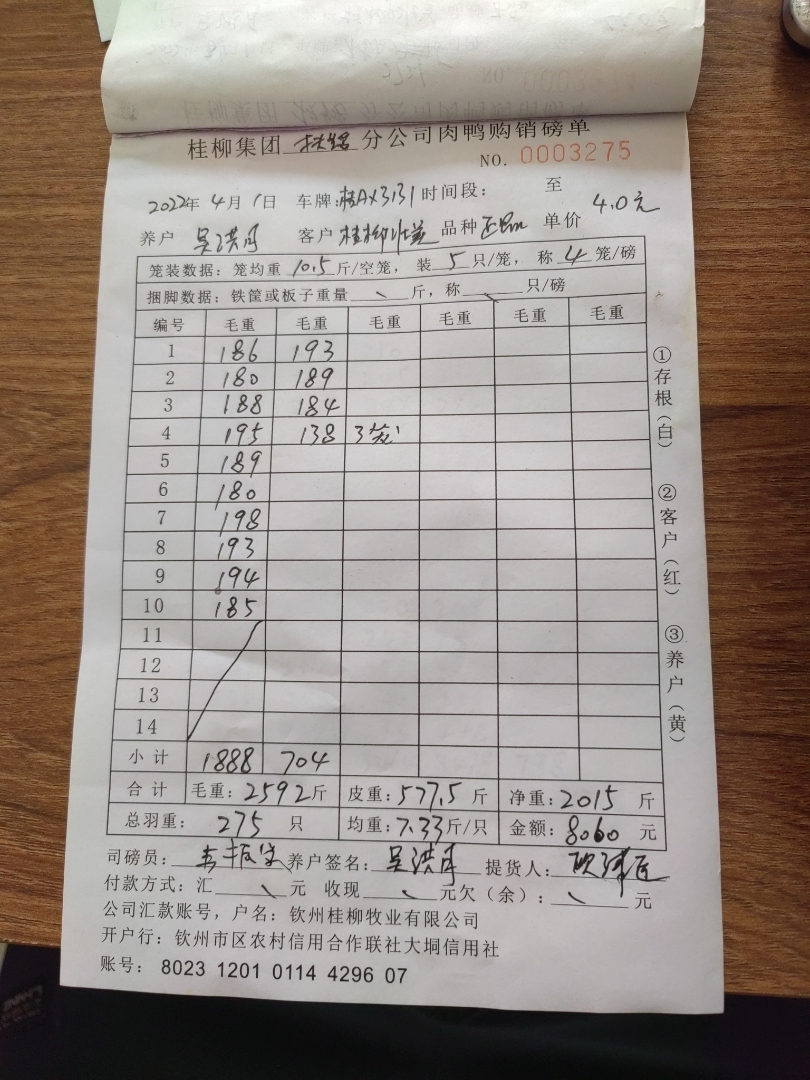 桂柳集团 分公司肉鸭购销磅单
NO. 0003275
2022年4月1日 车牌:桂AX3131 时间段: 至
养户 吴洪月 客户 桂柳 品种 正品 单价 4.0元
笼装数据: 笼均重 10.5 斤/空笼, 装 5 只/笼, 称 4 笼/磅
捆脚数据: 铁筐或板子重量 斤, 称 只/磅
编号 毛重 毛重 毛重 毛重 毛重 毛重
1 186 193
2 180 189
3 188 184
4 195 138 3笼
5 189
6 180
7 198
8 193
9 194
10 185
11
12
13
14
小计 1888 704
合计 毛重: 2592斤 皮重: 577.5 斤 净重: 2015 斤
总羽重: 275 只 均重: 7.33斤/只 金额: 8060 元
司磅员: 养户签名: 吴洪月 提货人:
付款方式: 汇 元 收现 元欠(余): 元
公司汇款账号, 户名: 钦州桂柳牧业有限公司
开户行: 钦州市区农村信用合作联社大垌信用社
账号: 8023 1201 0114 4296 07
①存根(白) ②客户(红) ③养户(黄)